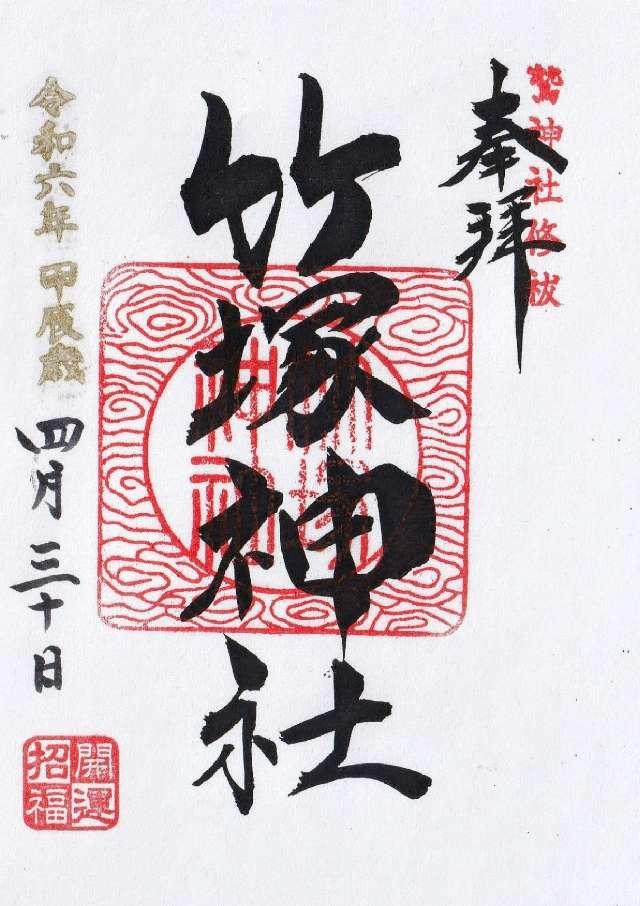 鷲神社修祓
奉拝
竹塚神社
令和六年 甲辰歳
四月三十日
開運
招福